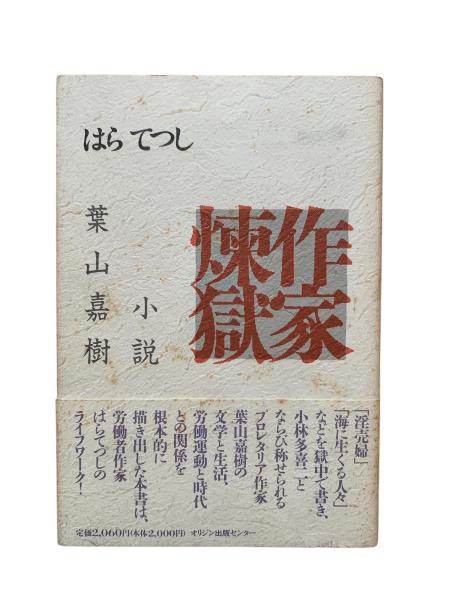 はら てつし
作家
煉獄
小説
葉山嘉樹
「淫売婦」
「海に生くる人々」
などを獄中で書き、
小林多喜二と
ならび称せられる
プロレタリア作家
葉山嘉樹の
文学と生活、
労働運動と時代
との関係を
根本的に
描き出した本書は、
労働者作家
はらてつしの
ライフワーク!
定価2,060円(本体2,000円) オリジン出版センター